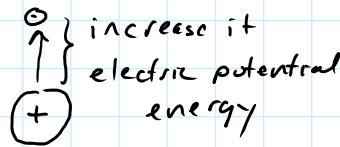 increase it
electric potential
energy
+
-